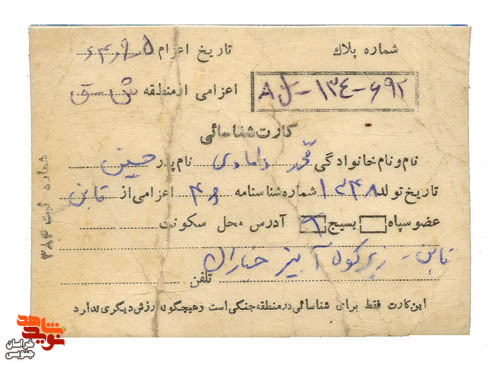 شماره پلاک تاریخ اعزام ۶۴٫۹٫۵
AJ-۱۳۴-۶۹۲ اعزامی از منطقه
کارت شناسائی
نام و نام خانوادگی محمد دامادی نام پدر حسین
تاریخ تولد ۱۳۴۸ شماره شناسنامه ۴۶ اعزامی از قاین
عضو سپاه بسیج آدرس محل سکونت
قاین -
تلفن
این کارت فقط برای شناسائی در منطقه جنگی است و هیچگونه ارزش دیگری ندارد
شماره ثبت ۳۸۴
نوید شاهد
خراسان جنوبی